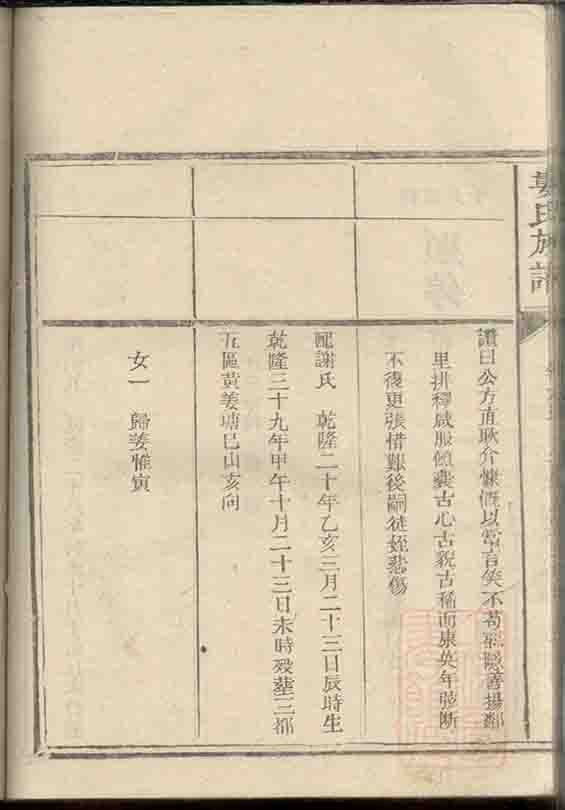 姜氏族譜
讃曰公方直耿介慷慨以當言笑不苟惡隱善揚鄰
里排釋咸服傾囊古心古貌古稀而康英年絃斷
不復更張惜艱後嗣徒姪悲傷
配謝氏 乾隆二十年乙亥三月二十三日辰時生
乾隆三十九年甲午十月二十三日未時歿塟三都
五區黄姜塘巳山亥向
女一 歸姜惟寅